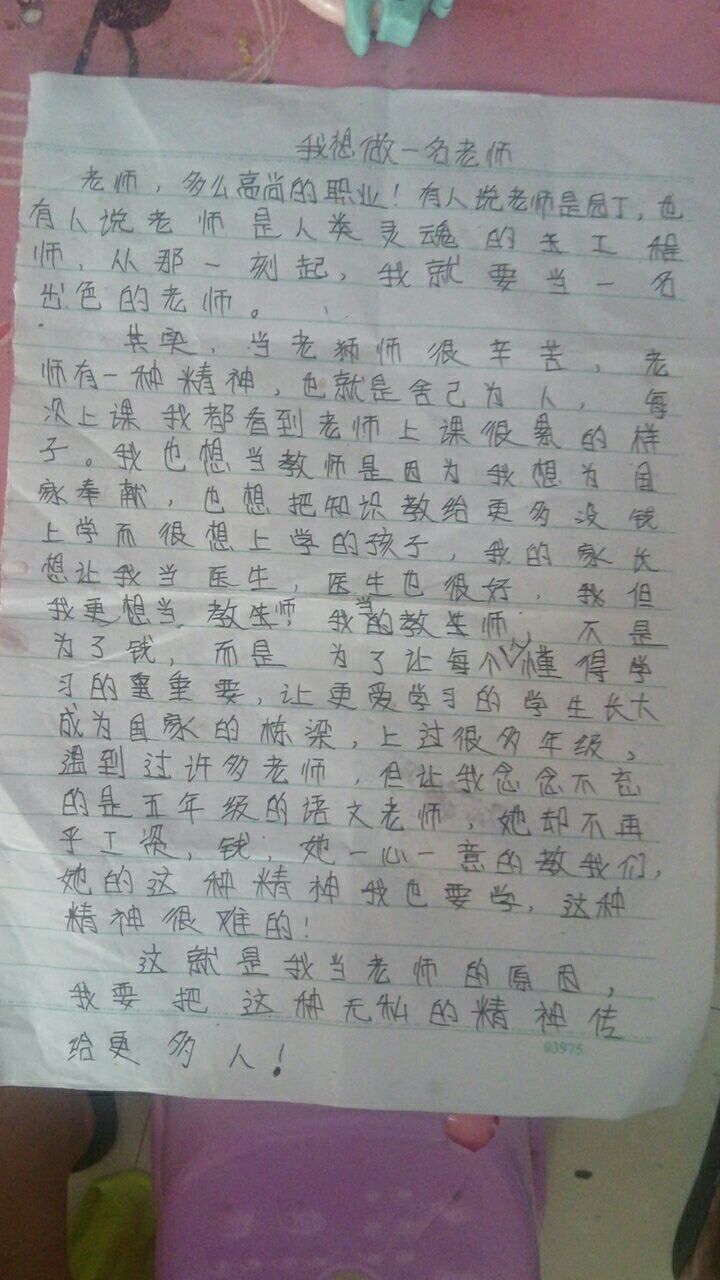 我想做一名老师
老师，多么高尚的职业！有人说老师是园丁，也
有人说老师是人类灵魂的工程
师，从那一刻起，我就要当一名
出色的老师。
其实，当老师很辛苦，老
师有一种精神，也就是舍己为人，每
次上课我都看到老师上课很累的样
子。我也想当教师是因为我想为国
家奉献，也想把知识教给更多没钱
上学而很想上学的孩子，我的家长
想让我当医生，医生也很好，我但
我更想当教师，我当的教师，不是
为了钱，而是为了让每个人懂得学
习的重要，让更爱学习的学生长大
成为国家的栋梁，上过很多年级，
遇到过许多老师，但让我念念不忘
的是五年级的语文老师，她却不再
乎工资，钱，她一心一意的教我们，
她的这种精神我也要学，这种
精神很难的！
这就是我当老师的原因，
我要把这种无私的精神传
给更多人！
03975